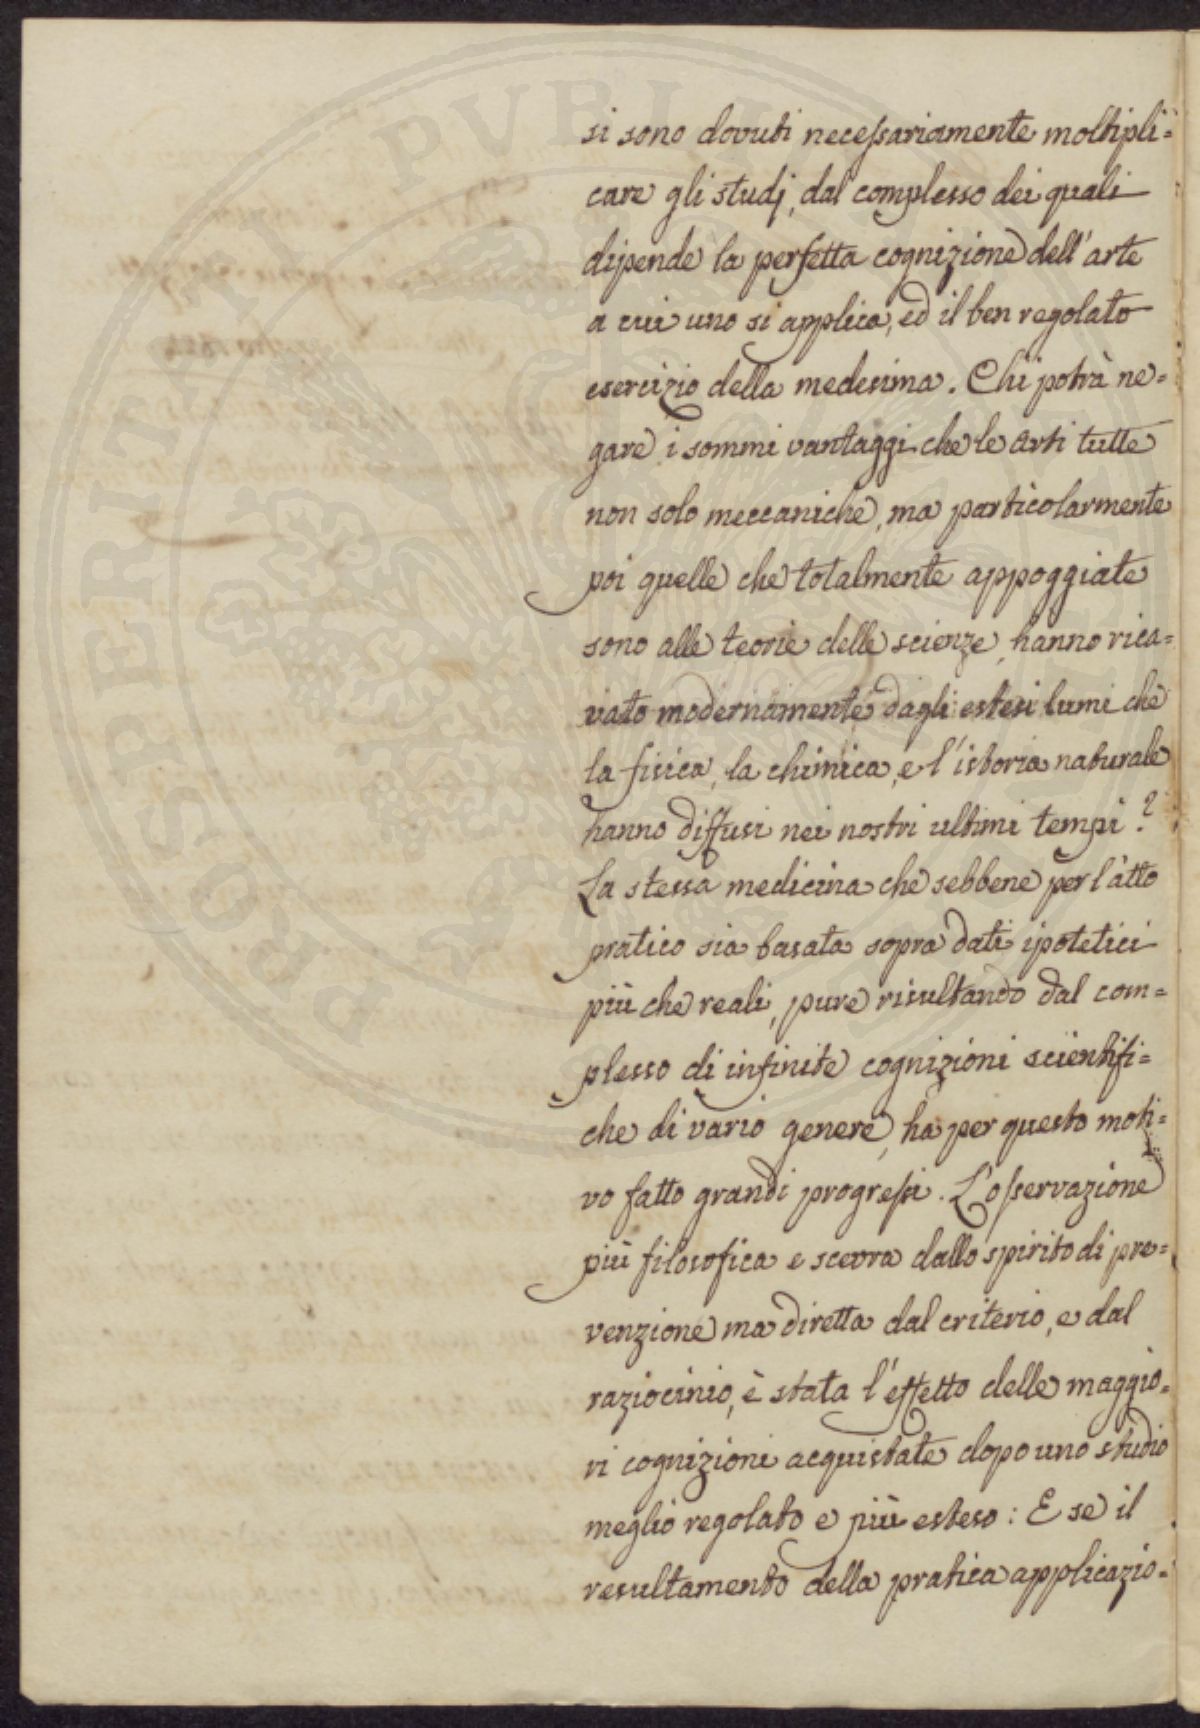 si sono dovuti necessariamente moltipli=
care gli studj, dal complesso dei quali
dipende la perfetta cognizione dell'arte
a cui uno si applica, ed il ben regolato
esercizio della medesima. Chi potrà ne=
gare i sommi vantaggi che le Arti tutte
non solo meccaniche, ma particolarmente
poi quelle che totalmente appoggiate
sono alle teorie delle scienze, hanno rica=
vato modernamente dagli estesi lumi che
la fisica, la chimica, e l'istoria naturale
hanno diffusi nei nostri ultimi tempi?
La stessa medicina che sebbene per l'atto
pratico sia basata sopra dati ipotetici
più che reali, pure risultando dal com=
plesso di infinite cognizioni scientifi=
che di vario genere, ha per questo moti=
vo fatto grandi progressi. L'osservazione
più filosofica e scevra dallo spirito di pre=
venzione ma diretta dal criterio, e dal
raziocinio, è stata l'effetto delle maggio=
ri cognizioni acquistate dopo uno studio
meglio regolato e più esteso: E se il
resultamento della pratica applicazio=
PROSPERITATI PVBLI